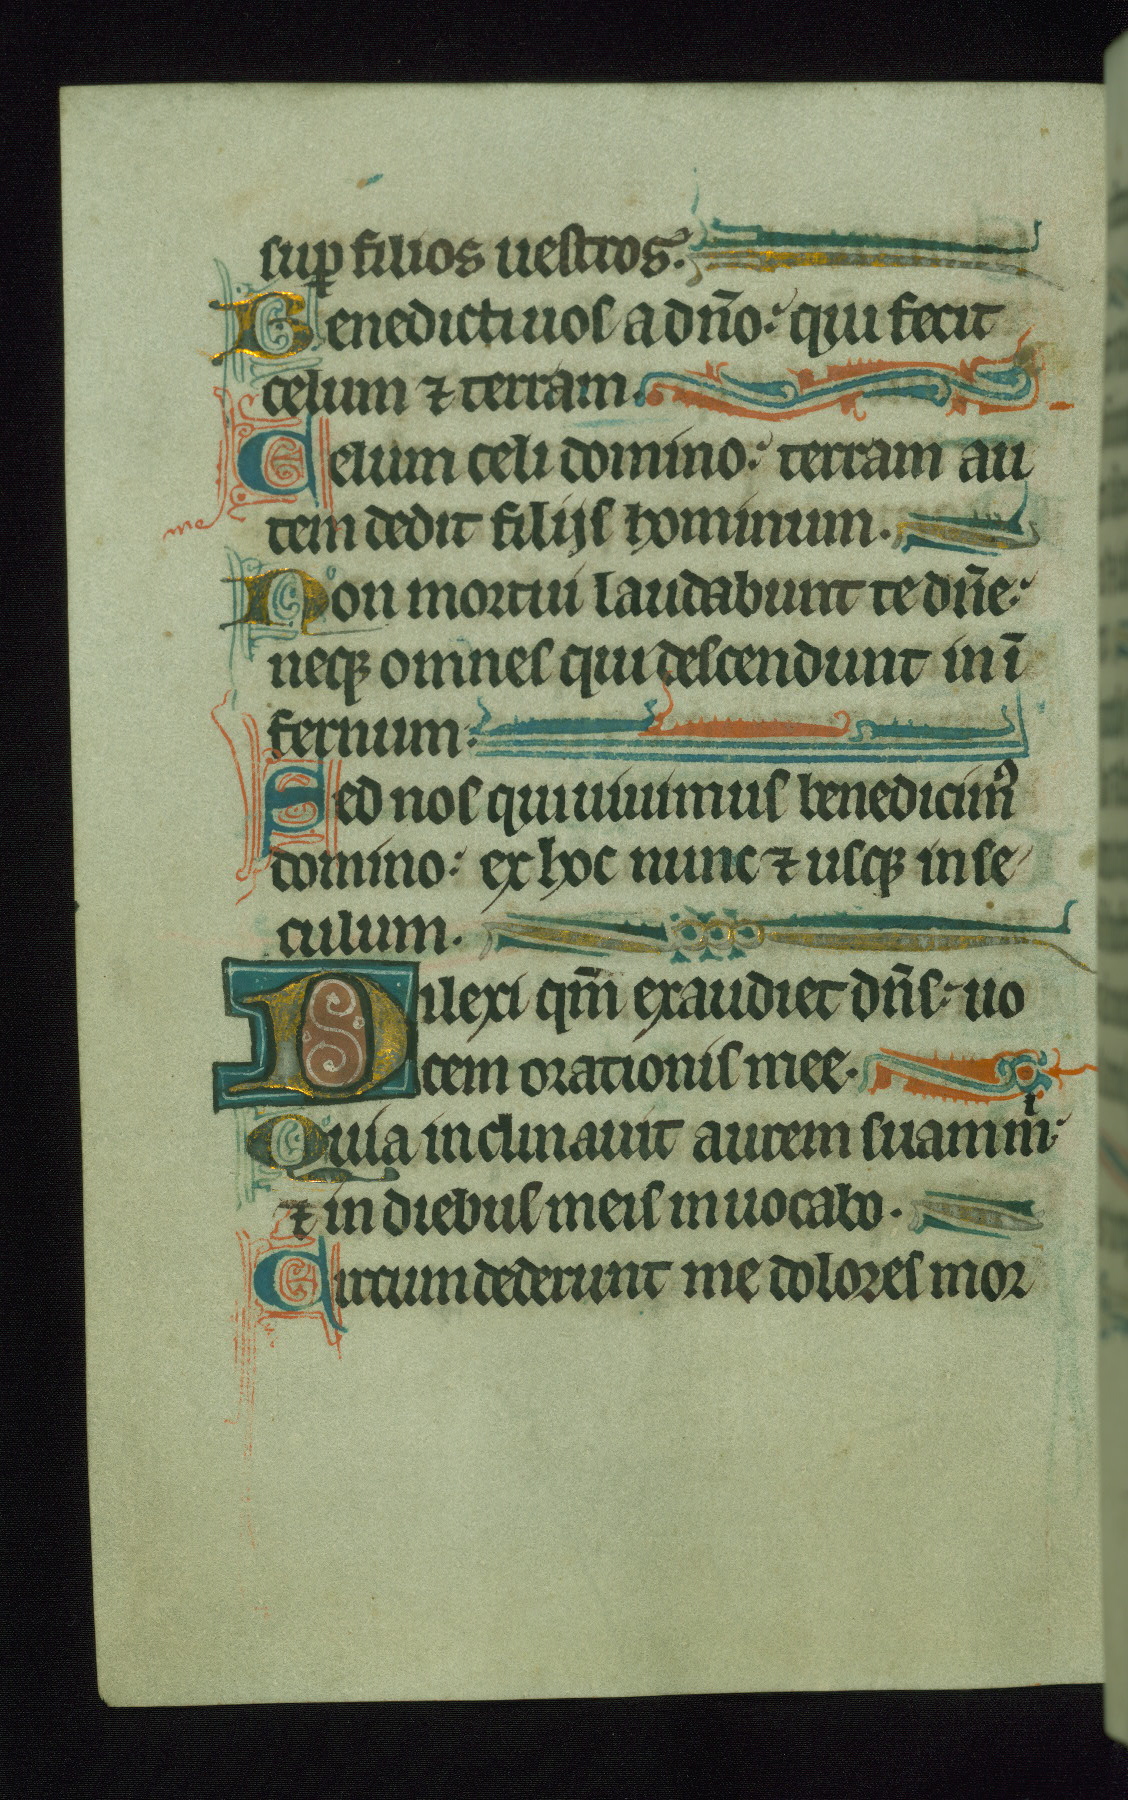 sup̲ filios uestros.
Benedicti uos a dn̄o: qui fecit
celum ⁊ terram.
Celum celi domino: terram au
tem dedit filijs hominum.
Non mortui laudabunt te dn̄e:
neqꝫ omnes qui descendunt in ī
fernum:
Sed nos qui uiuimus benedicimꝰ
domino: ex hoc nunc ⁊ usqꝫ in se
culum.
Dilexi qm̄ exaudiet dn̄s: uo
cem orationis mee.
Quia inclinauit aurem suam mͥ:
⁊ in diebus meis inuocabo.
Circumdederunt me dolores mor